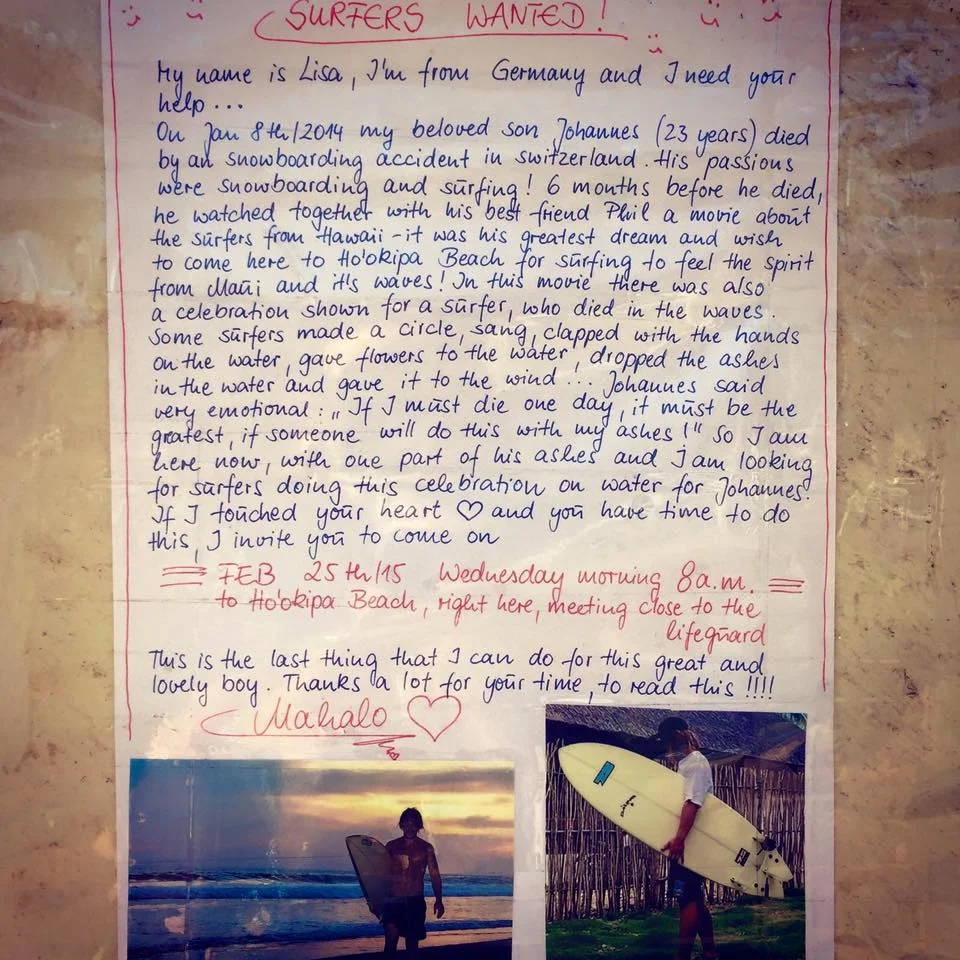 SURFERS WANTED!
My name is Lisa, I'm from Germany and I need your
help...
On Jan 8th/2014 my beloved son Johannes (23 years) died
by an snowboarding accident in switzerland. His passions
were snowboarding and surfing! 6 months before he died,
he watched together with his best friend Phil a movie about
the surfers from Hawaii - it was his greatest dream and wish
to come here to Ho'okipa Beach for surfing to feel the spirit
from Maui and it's waves! In this movie there was also
a celebration shown for a surfer, who died in the waves.
Some surfers made a circle, sang, clapped with the hands
on the water, gave flowers to the water, dropped the ashes
in the water and gave it to the wind... Johannes said
very emotional: „If I must die one day, it must be the
greatest, if someone will do this with my ashes!" So I am
here now, with one part of his ashes and I am looking
for surfers doing this celebration on water for Johannes!
If I touched your heart ♡ and you have time to do
this, I invite you to come on
FEB 25th/15 Wednesday morning 8a.m.
to Ho'okipa Beach, right here, meeting close to the
lifeguard
This is the last thing that I can do for this great and
lovely boy. Thanks a lot for your time, to read this !!!!
Mahalo ♡